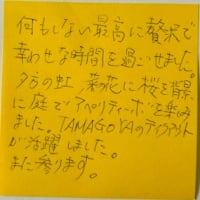 何もしない最高に贅沢で
幸わせな時間を過ごせました。
夕方の虹、菜花に桜を背景
に庭でアペリティーボを楽しみ
ました。TAMAGOYAのテイクアウト
が活躍しました。
また参ります。